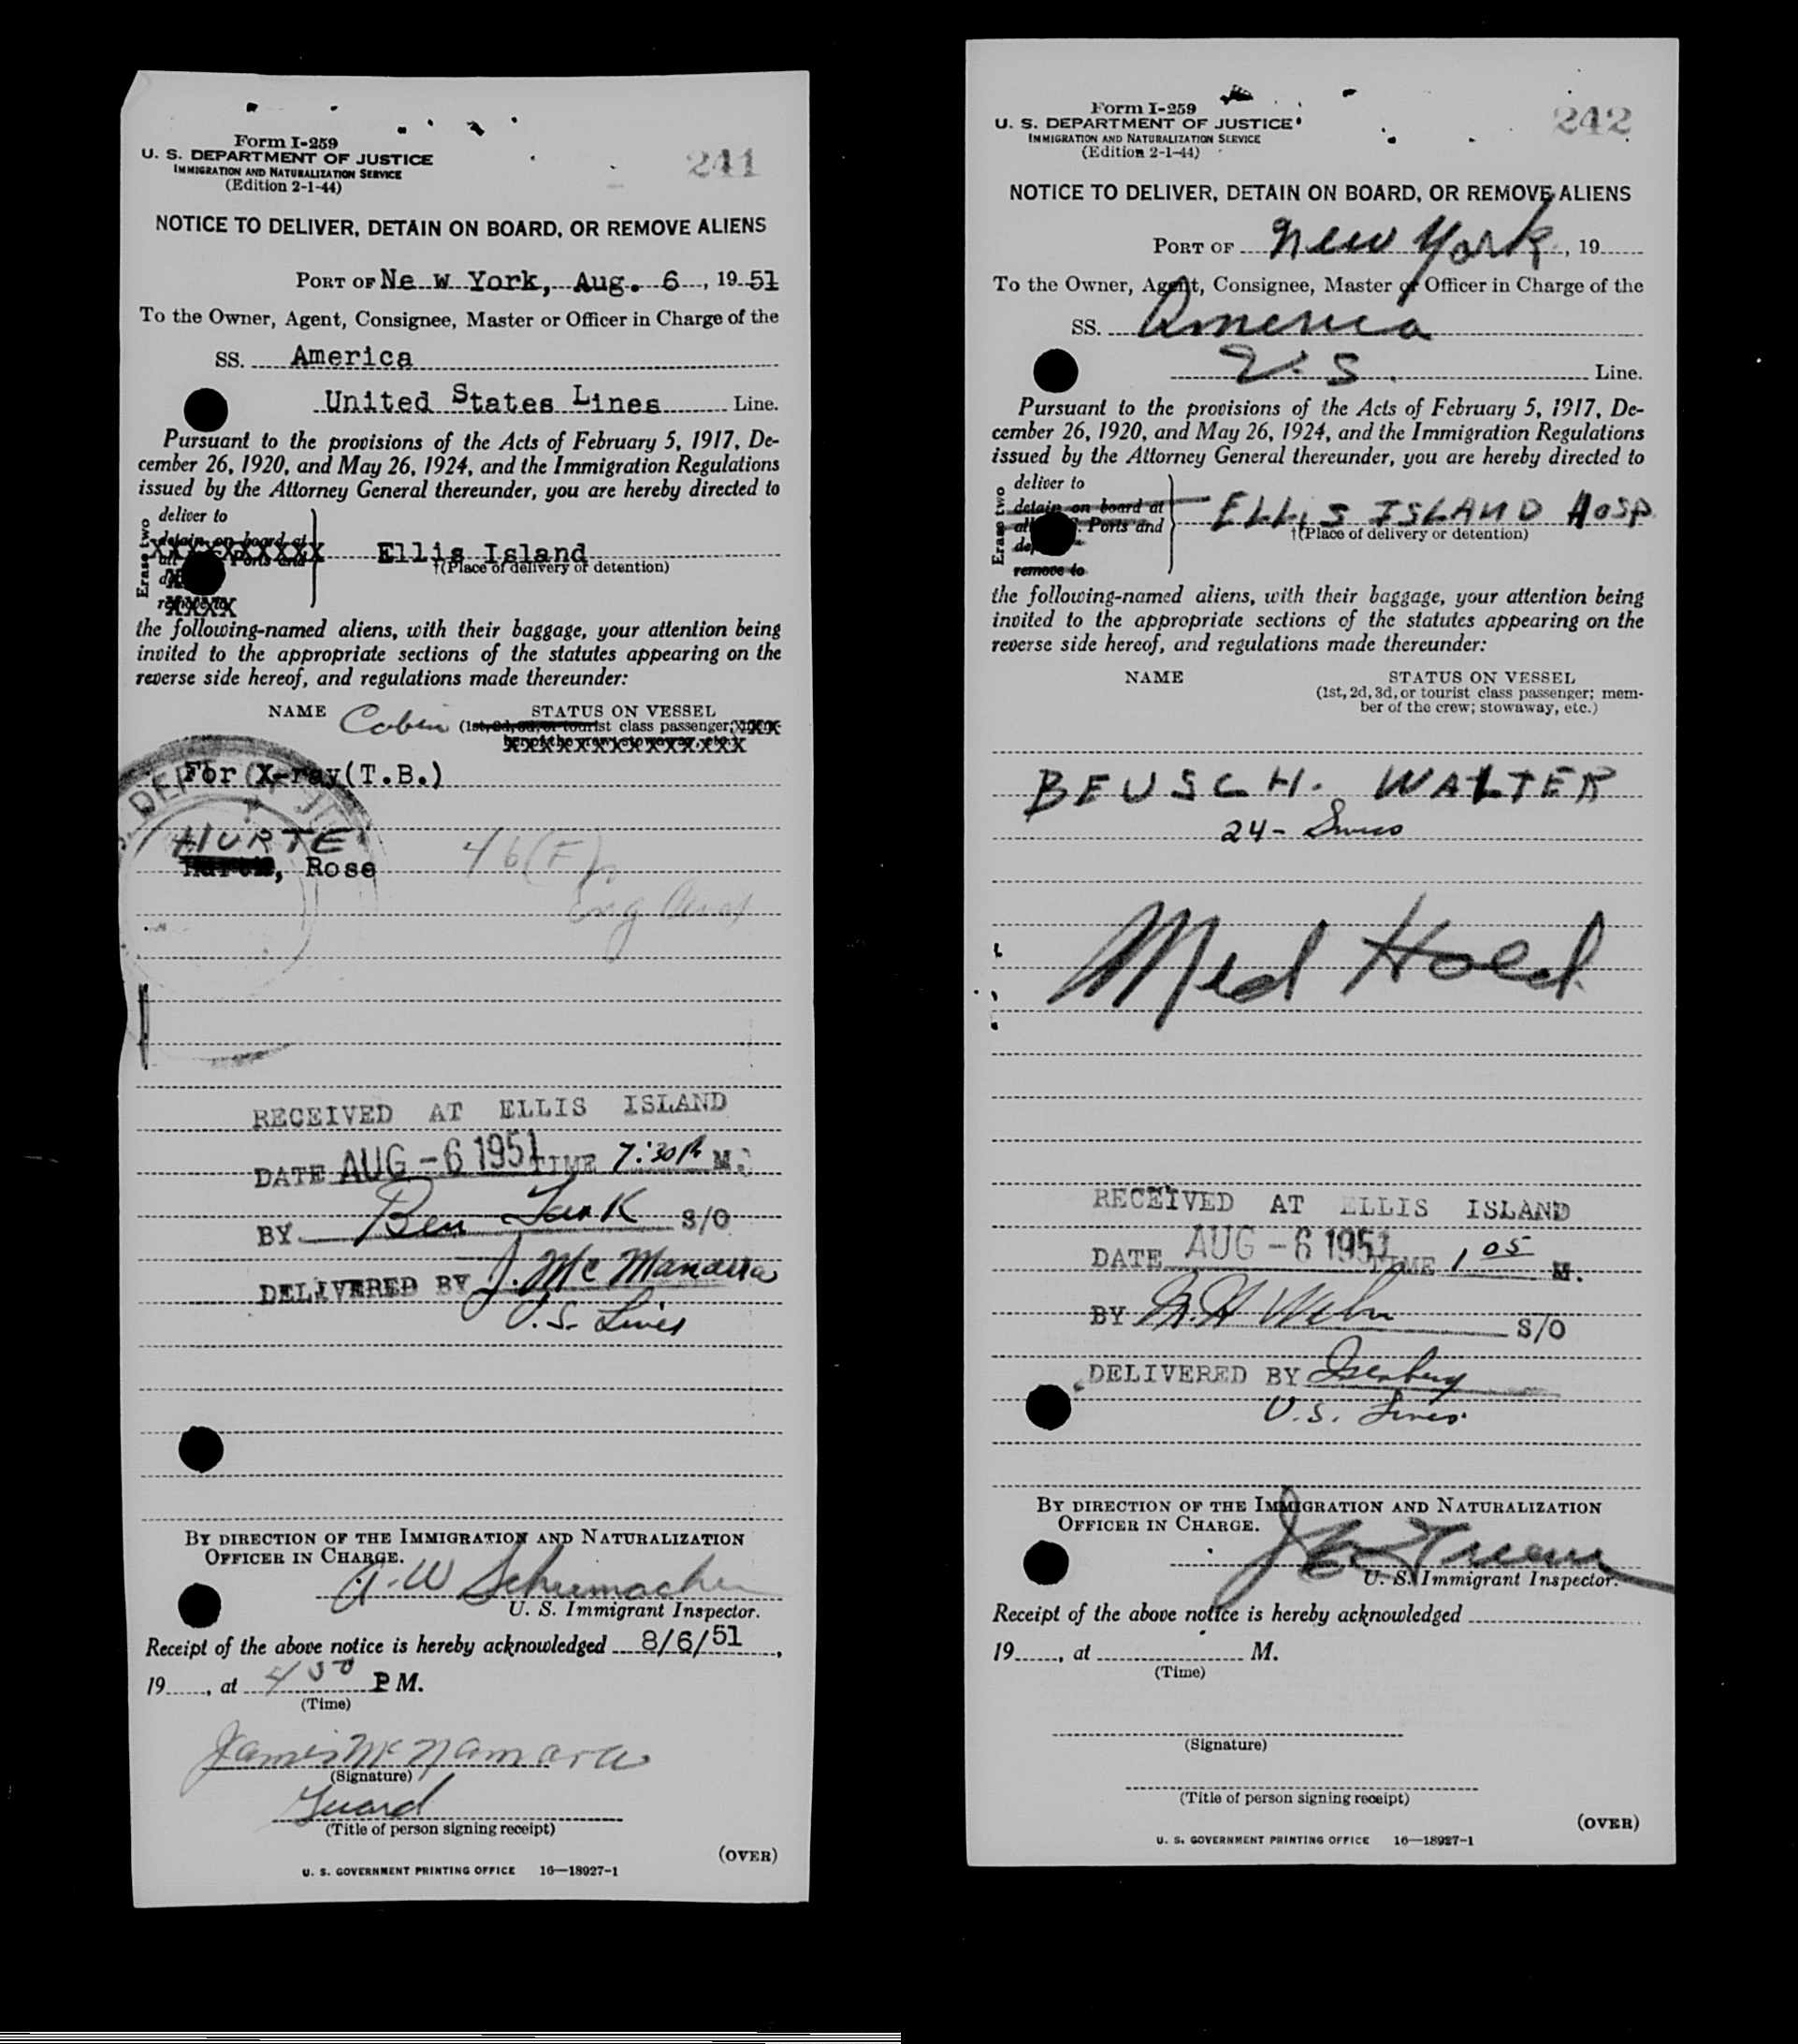 Form I-259
U. S. DEPARTMENT OF JUSTICE
IMMIGRATION AND NATURALIZATION SERVICE
(Edition 2-1-44)
241
NOTICE TO DELIVER, DETAIN ON BOARD, OR REMOVE ALIENS
PORT OF Ne w York, Aug. 6, 1951
To the Owner, Agent, Consignee, Master or Officer in Charge of the
SS. America
United States Lines Line.
Pursuant to the provisions of the Acts of February 5, 1917, De-
cember 26, 1920, and May 26, 1924, and the Immigration Regulations
issued by the Attorney General thereunder, you are hereby directed to
Erase two
deliver to
detain on board at
all Ports and
remove to
Ellis Island
†(Place of delivery or detention)
the following-named aliens, with their baggage, your attention being
invited to the appropriate sections of the statutes appearing on the
reverse side hereof, and regulations made thereunder:
NAME Cabin STATUS ON VESSEL
(1st, 2d, 3d, or tourist class passenger;
For X-ray(T.B.)
HURTE
, Rose 46(F)
England
RECEIVED AT ELLIS ISLAND
DATE AUG -6 1951 TIME 7:30 P M.
BY Ben S/O
DELIVERED BY J. Mc Manarra
U.S. Lines
BY DIRECTION OF THE IMMIGRATION AND NATURALIZATION
OFFICER IN CHARGE.
A.W Schumacher
U. S. Immigrant Inspector.
Receipt of the above notice is hereby acknowledged 8/6/51,
19, at 4 30 P M.
(Time)
James McNamara
(Signature)
Guard
(Title of person signing receipt)
(OVER)
U. S. GOVERNMENT PRINTING OFFICE 16—18927-1
Form I-259
U. S. DEPARTMENT OF JUSTICE
IMMIGRATION AND NATURALIZATION SERVICE
(Edition 2-1-44)
242
NOTICE TO DELIVER, DETAIN ON BOARD, OR REMOVE ALIENS
PORT OF New York, 19
To the Owner, Agent, Consignee, Master or Officer in Charge of the
SS. America
U.S. Line.
Pursuant to the provisions of the Acts of February 5, 1917, De-
cember 26, 1920, and May 26, 1924, and the Immigration Regulations
issued by the Attorney General thereunder, you are hereby directed to
Erase two
deliver to
detain on board at
all Ports and
remove to
ELLIS ISLAND HOSP
†(Place of delivery or detention)
the following-named aliens, with their baggage, your attention being
invited to the appropriate sections of the statutes appearing on the
reverse side hereof, and regulations made thereunder:
NAME STATUS ON VESSEL
(1st, 2d, 3d, or tourist class passenger; mem-
ber of the crew; stowaway, etc.)
BEUSCH. WALTER
24- Swiss
Med Hold
RECEIVED AT ELLIS ISLAND
DATE AUG -6 1951 TIME 1 05 M.
BY S/O
DELIVERED BY Isenberg
U.S. Lines
BY DIRECTION OF THE IMMIGRATION AND NATURALIZATION
OFFICER IN CHARGE.
U. S. Immigrant Inspector.
Receipt of the above notice is hereby acknowledged
19, at M.
(Time)
(Signature)
(Title of person signing receipt)
(OVER)
U. S. GOVERNMENT PRINTING OFFICE 16—18927-1